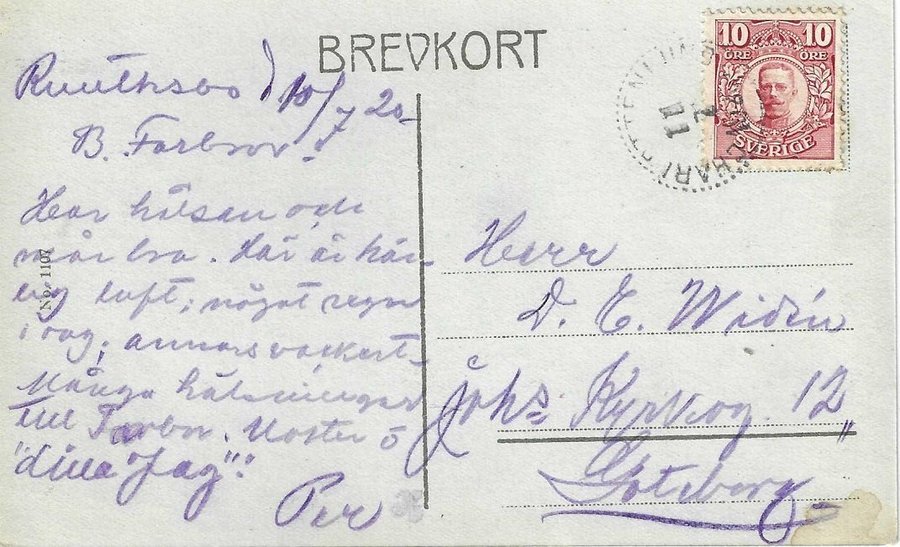 BREVKORT
10 10
ÖRE ÖRE
SVERIGE
11
10/7 20
B. Farbror!
Har hälsan och
mår bra. Här är här-
lig luft; något regn
i dag; annars vackert.
Många hälsningar
till Farbror, Moster o
"lilla Jag":
Per
No. 1107
Herr
D. E. Widén
Johs Kyrkog. 12
Göteborg